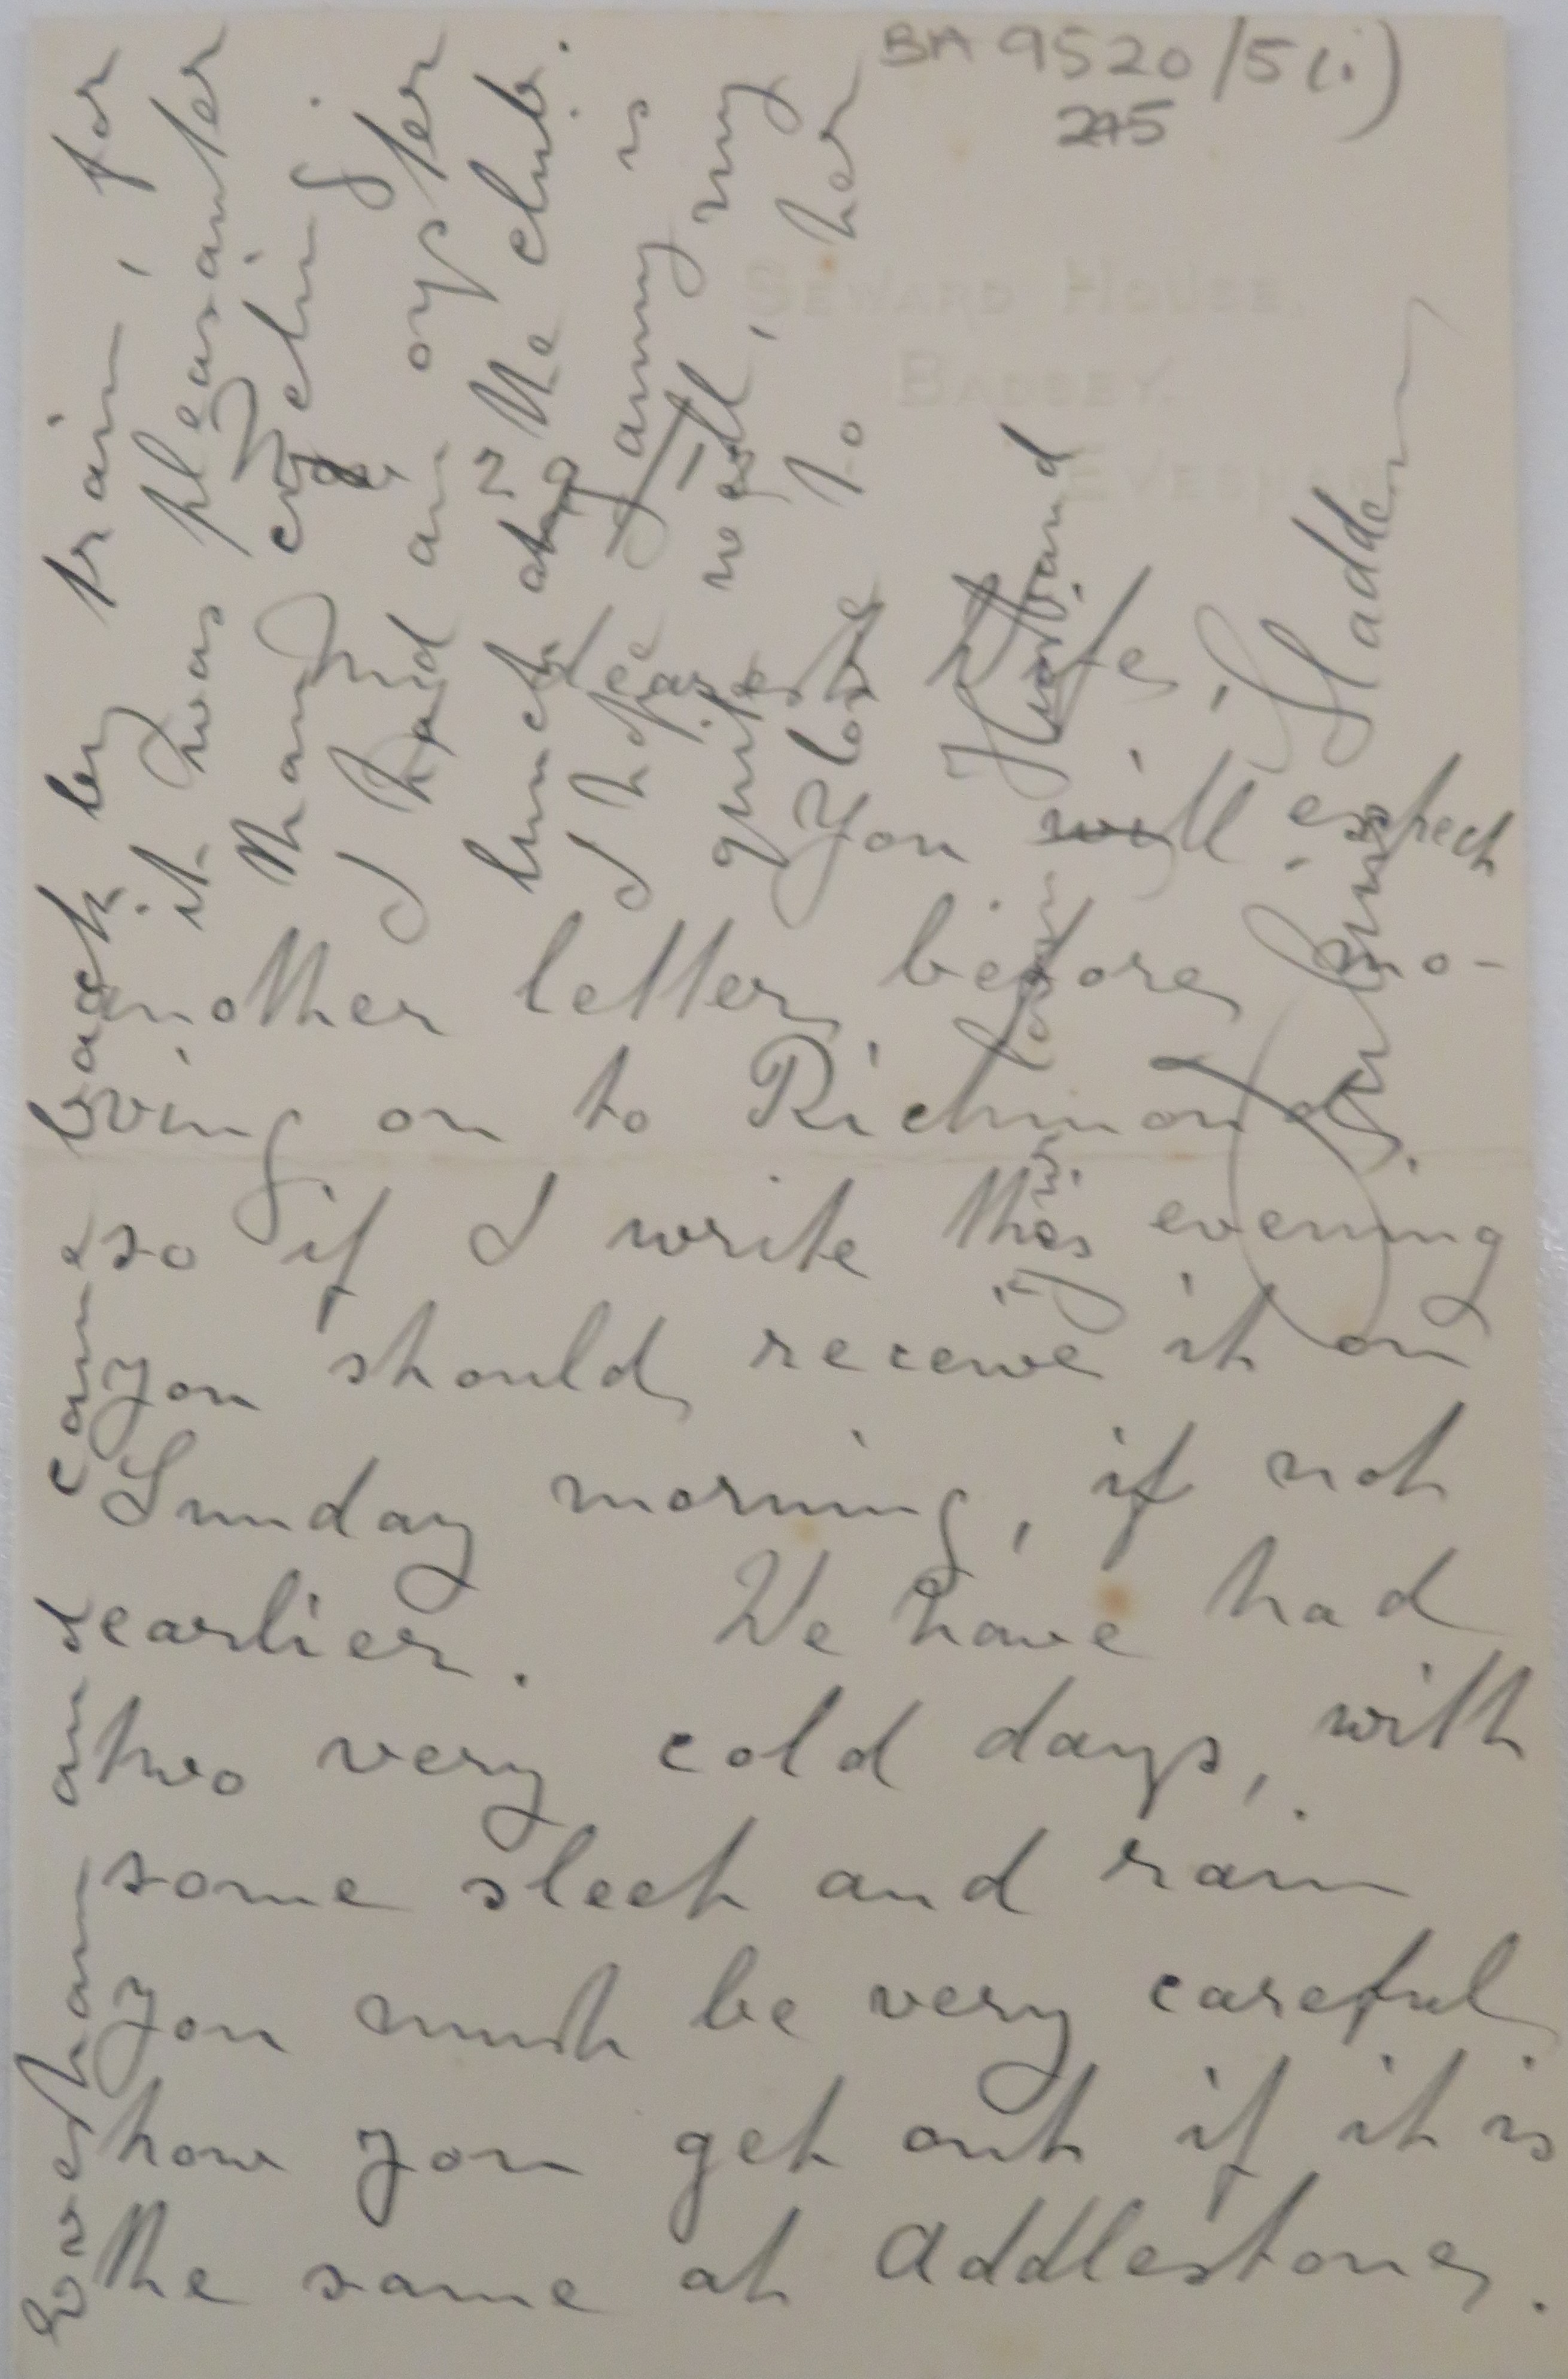 BA 9520/5(i)
245
SEWARD HOUSE,
BADSEY,
EVESHAM.
Dearest Wife,
You will expect
another letter before mo-
ving on to Richmond,
so if I write this evening
you should receive it on
Sunday morning, if not
earlier. We have had
two very cold days, with
some sleet and rain
you must be very careful
how you get out if it is
the same at Addlestone.
Evesham and came back by train, for
it was pleasanter
than cycling.
I had an oyster
lunch at the club.
I hope Fanny is
quite well, my
love to her
loving Husband
Julius Sladden